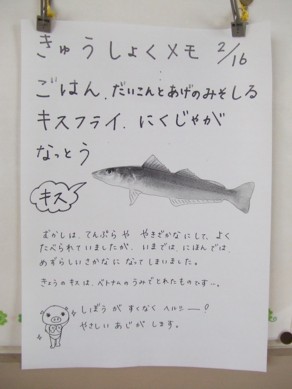 きゅうしょくメモ 2/16
ごはん、だいこんとあげのみそしる
キスフライ、にくじゃが
なっとう
キス
むかしは、てんぷらや やきざかなにして、よく
たべられていましたが、いまでは、にほんでは、
めずらしいさかなに なってしまいました。
きょうのキスは、ベトナムのうみでとれたものです…。
しぼうが すくなく ヘルシー！
やさしい あじが します。